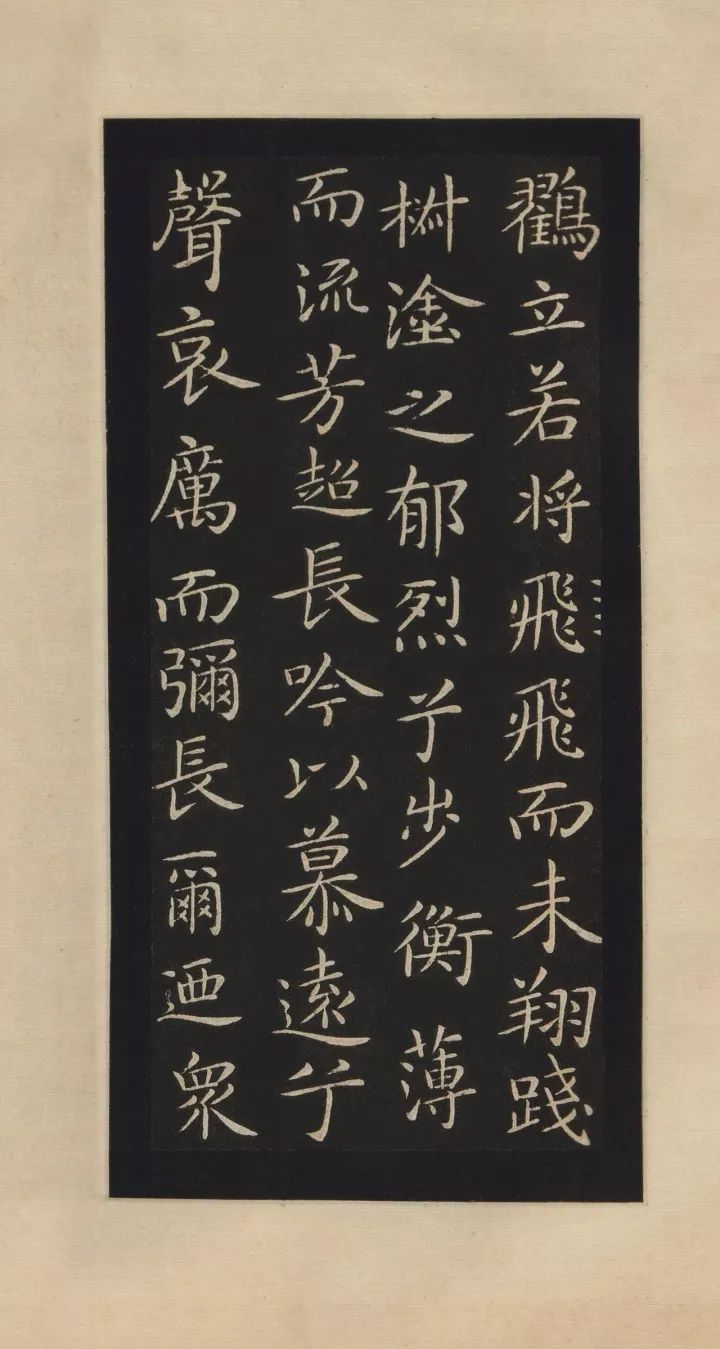 鸐立若将飛飛而未翔踐
椒塗之郁烈兮步衡薄
而流芳超長吟以慕遠兮
聲哀厲而彌長爾迺衆